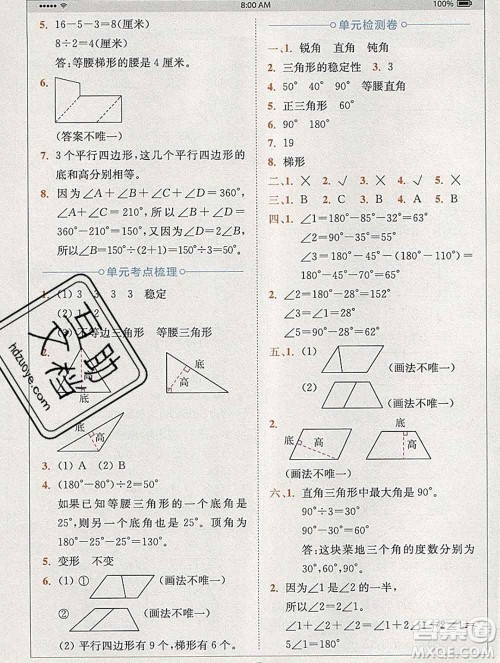 8:00 AM
100%
5. 16－5－3=8(厘米)
8÷2=4(厘米)
答:等腰梯形的腰是4厘米。
6.
(答案不唯一)
7. 3个平行四边形,这几个平行四边形的底和高分别相等。
8. 因为∠A＋∠B＋∠C＋∠D=360°,
∠A＋∠B=150°,所以∠C＋∠D=
360°－150°=210°。因为∠C=∠D,
所以∠B=150°÷(2＋1)=150°÷3=50°
单元考点梳理
1. (1) 3 3 3 3 稳定
不等边三角形 等腰三角形
底
高
底
高
底
高
3. (1) A (2) B
4. (180°－80°)÷2=50°
如果已知等腰三角形的一个底角是
25°,则另一个底角也是25°。顶角为
180°－25°－25°=130°。
5. 变形 不变
6. (1) ① (画法不唯一)
② (画法不唯一)
(2) 平行四边形有9个,梯形有6个。
单元检测卷
一、1. 锐角 直角 钝角
2. 三角形的稳定性 3. 3
4. 50° 40° 90° 等腰直角
5. 正三角形 60°
6. 90° 180°
7. 19
8. 梯形
二、1. × 2. √ 3. × 4. √ 5. ×
三、1. B 2. C 3. A 4. B 5. B
四、1. ∠1=180°－85°－32=63°
∠2=180°－63°=117°
∠3=180°－45°－(180°－110°)=65°
2. ∠2=180°－45°=135°
3. ∠1=180°－90°－28°=62°
4. ∠2=180°－150°=30°
∠1=180°－30°－87°=63°
五、1. (画法不唯一)
2. 底 高 高 底
(画法不唯一)
六、1. 直角三角形中最大角是90°。
90°÷3=30°
90°－30°=60°
答:这块菜地三个角的度数分别为
30°,60°,90°。
2. 因为∠1是∠2的一半,
所以∠2=∠1＋∠1
∠1＋∠2＋∠2=∠1＋∠1＋∠1＋
5∠1=180°
互助文档
hdzuoye.com
答案圈
MXQE.COM